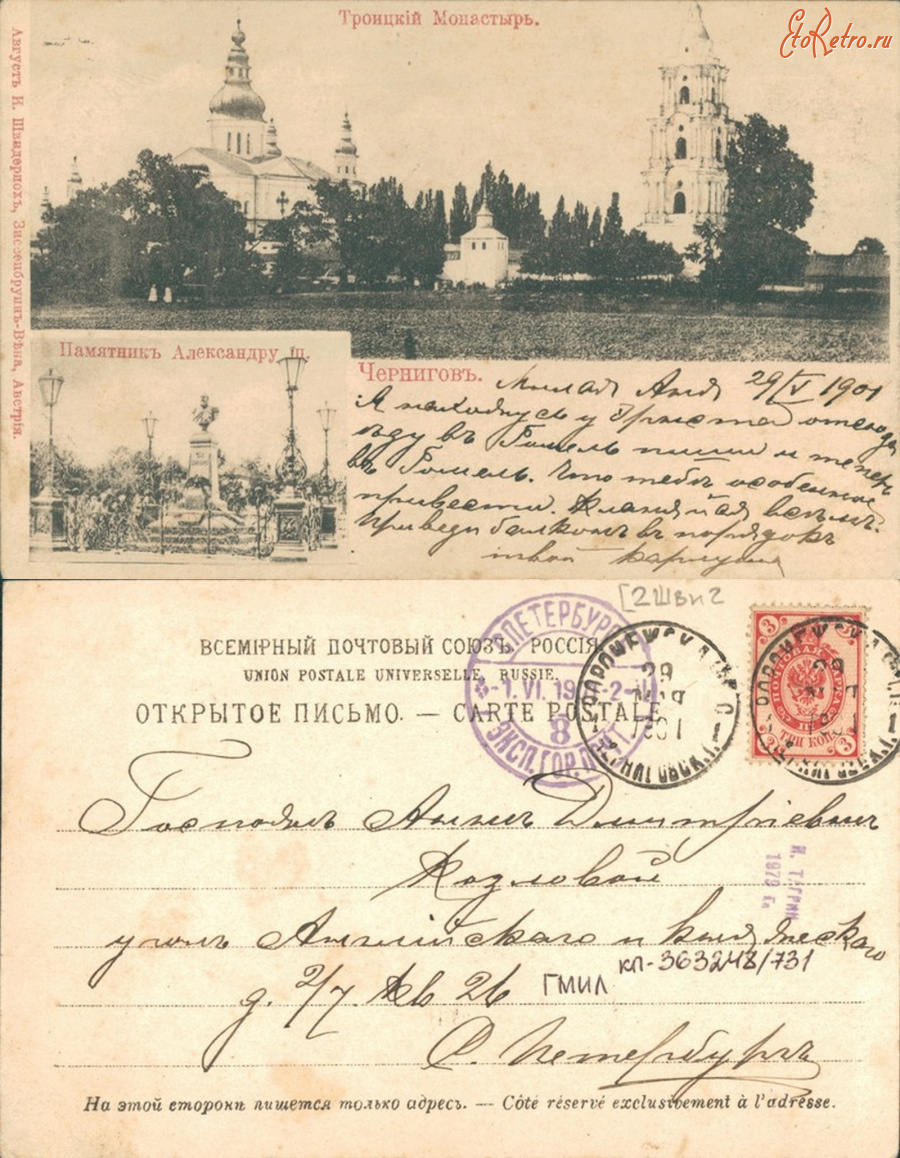 Троицкій Монастырь.
EtoRetro.ru
Августъ И. Швадерпохъ, Зиссенбруннъ-Вѣна, Австрія.
Памятникъ Александру III.
Черниговъ.
Милая Аня 29/V 1901
Я нахожусь у отсюда
ѣду въ Гомель пиши и теперь
въ Гомель. Что тебѣ особенное
привести. Кланяйся всѣмъ.
Приведи балконъ въ порядокъ
твой
[2Шви2
ПЕТЕРБУРГ
1.VI.19 -2-
8
ЭКСП.ГОР.ПОЧТ.
29
1901
3
ТРИ КОП.
ВСЕМІРНЫЙ ПОЧТОВЫЙ СОЮЗЪ. РОССІЯ.
UNION POSTALE UNIVERSELLE, RUSSIE.
ОТКРЫТОЕ ПИСЬМО. — CARTE POSTALE
Госпожѣ Аннѣ Дмитріевнѣ
Козловой
И. ТАГРИН
1979 г.
уголъ Англійскаго и
д. 2/7 кв 26
ГМИЛ КП-363248/731
С. Петербургъ
На этой сторонѣ пишется только адресъ. — Côté réservé exclusivement à l'adresse.